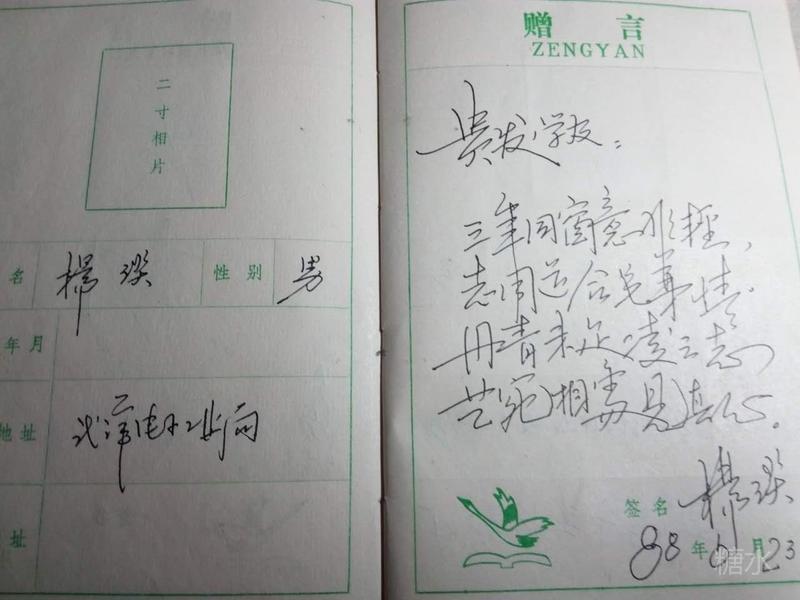 二寸相片
名 杨 性别 男
年月
地址 电业局
址
赠言
ZENGYAN
贵发学友：
三年同窗意
志同道合兄弟情，
丹青未足凌云志，
艺苑相处见真心。
签名 杨
88年6月23
糖水